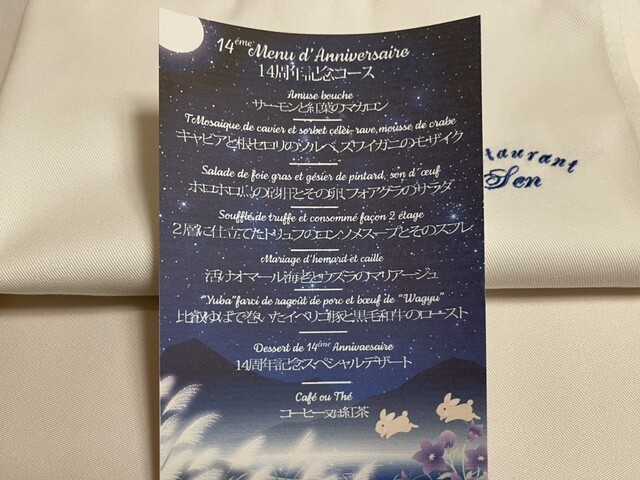 14éme Menu d'Anniversaire
14周年記念コース
Amuse bouche
サーモンと紅葉のマカロン
TMosaique de cavier et sorbet céléi-rave, mousse de crabe
キャビアと根セロリのソルベ、ズワイガニのモザイク
Salade de foie gras et gésier de pintard, son d'œuf
ホロホロ鳥の砂肝とその卵、フォアグラのサラダ
Souffle de truffe et consommé façon 2 étage
2層に仕立てたトリュフのコンソメスープとそのスフレ
Mariage d'homard et caille
活けオマール海老とウズラのマリアージュ
"Yuba" farci de ragoût de porc et bœuf de "Wagyu"
比叡ゆばで巻いたイベリコ豚と黒毛和牛のロースト
Dessert de 14éme Annivaesaire
14周年記念スペシャルデザート
Café ou Thé
コーヒー又は紅茶
Sen